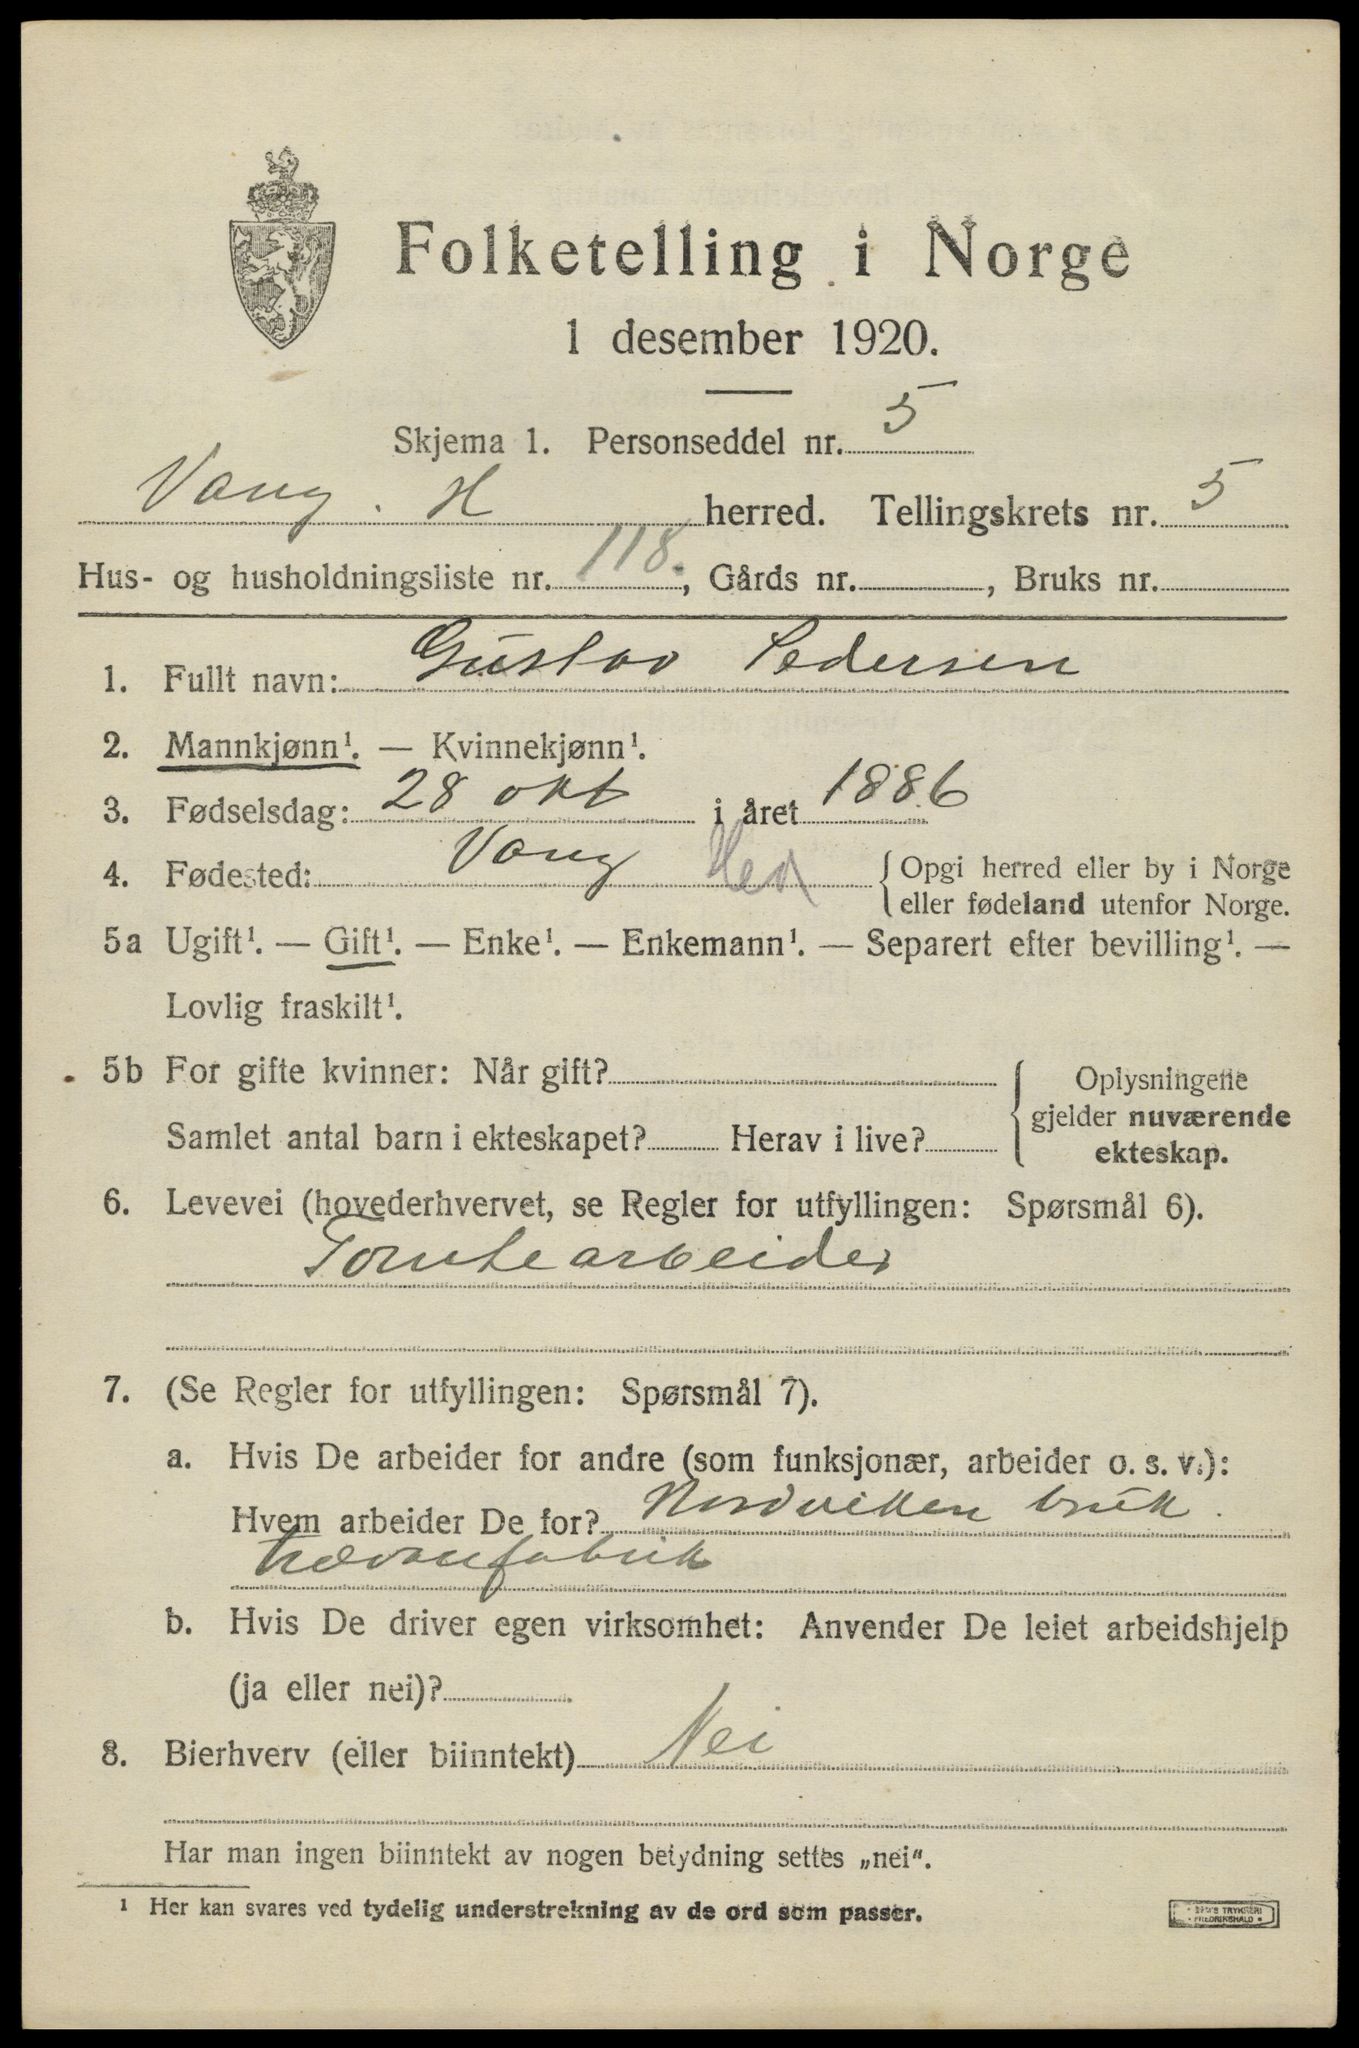 Folketelling i Norge
1 desember 1920.
Skjema 1. Personseddel nr. 5
Vang. H herred. Tellingskrets nr. 5
Hus- og husholdningsliste nr. 118., Gårds nr. , Bruks nr.
1. Fullt navn: Gustav Pedersen
2. Mannkjønn¹. — Kvinnekjønn¹.
3. Fødselsdag: 28 okt i året 1886
4. Fødested: Vang Hed { Opgi herred eller by i Norge
eller fødeland utenfor Norge.
5a Ugift¹. — Gift¹. — Enke¹. — Enkemann¹. — Separert efter bevilling¹. —
Lovlig fraskilt¹.
5b For gifte kvinner: Når gift? { Oplysningene
gjelder nuværende
Samlet antal barn i ekteskapet? Herav i live?
ekteskap.
6. Levevei (hovederhvervet, se Regler for utfyllingen: Spørsmål 6).
Tomtearbeider
7. (Se Regler for utfyllingen: Spørsmål 7).
a. Hvis De arbeider for andre (som funksjonær, arbeider o. s. v.):
Hvem arbeider De for? Nordviken bruk.
trævarefabrik
b. Hvis De driver egen virksomhet: Anvender De leiet arbeidshjelp
(ja eller nei)?
8. Bierhverv (eller biinntekt) Nei
Har man ingen biinntekt av nogen betydning settes „nei".
¹ Her kan svares ved tydelig understrekning av de ord som passer.
TRYKKERI
FREDRIKSHALD